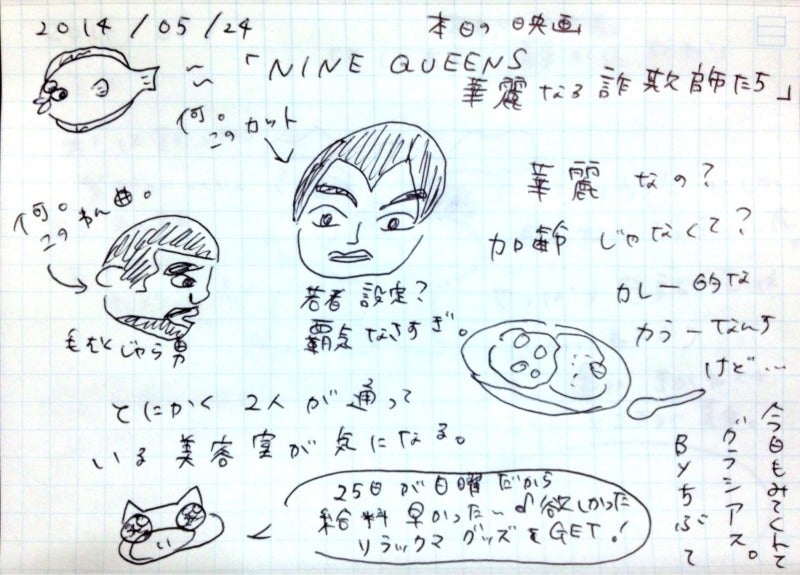 2014/05/24
本日の映画
「NINE QUEENS
華麗なる詐欺師たち」
何。
このカット
華麗なの?
加齢じゃなくて?
カレー的な
カラーなんす
けど…
何。
この
毛むくじゃら男
若者設定?
覇気なさすぎ。
とにかく2人が通って
いる美容室が気になる。
25日が日曜だから
給料早かった〜♪欲しかった
リラックマグッズをGET!
い
今日もみてくれて
グラシアス。
Byちぷて